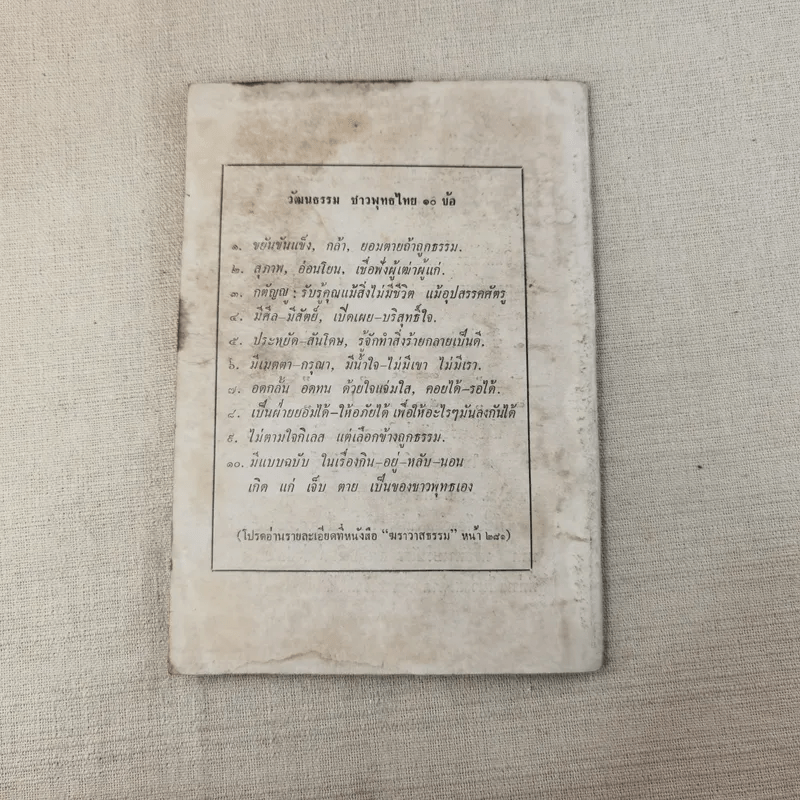 วัฒนธรรม ชาวพุทธไทย ๑๐ ข้อ
๑. ขยันขันแข็ง, กล้า, ยอมตายถ้าถูกธรรม.
๒. สุภาพ, อ่อนโยน, เชื่อฟังผู้เฒ่าผู้แก่.
๓. กตัญญู : รับรู้คุณแม้สิ่งไม่มีชีวิต แม้อุปสรรคศัตรู
๔. มีศีล–มีสัตย์, เปิดเผย–บริสุทธิ์ใจ.
๕. ประหยัด–สันโดษ, รู้จักทำสิ่งร้ายกลายเป็นดี.
๖. มีเมตตา–กรุณา, มีน้ำใจ–ไม่มีเขา ไม่มีเรา.
๗. อดกลั้น อดทน ด้วยใจแจ่มใส, คอยได้–รอได้.
๘. เป็นฝ่ายยอมได้–ให้อภัยได้ เพื่อให้อะไรๆมันลงกันได้
๙. ไม่ตามใจกิเลส แต่เลือกข้างถูกธรรม.
๑๐. มีแบบฉบับ ในเรื่องกิน–อยู่–หลับ–นอน
เกิด แก่ เจ็บ ตาย เป็นของชาวพุทธเอง
(โปรดอ่านรายละเอียดที่หนังสือ “ฆราวาสธรรม” หน้า ๒๘๑)